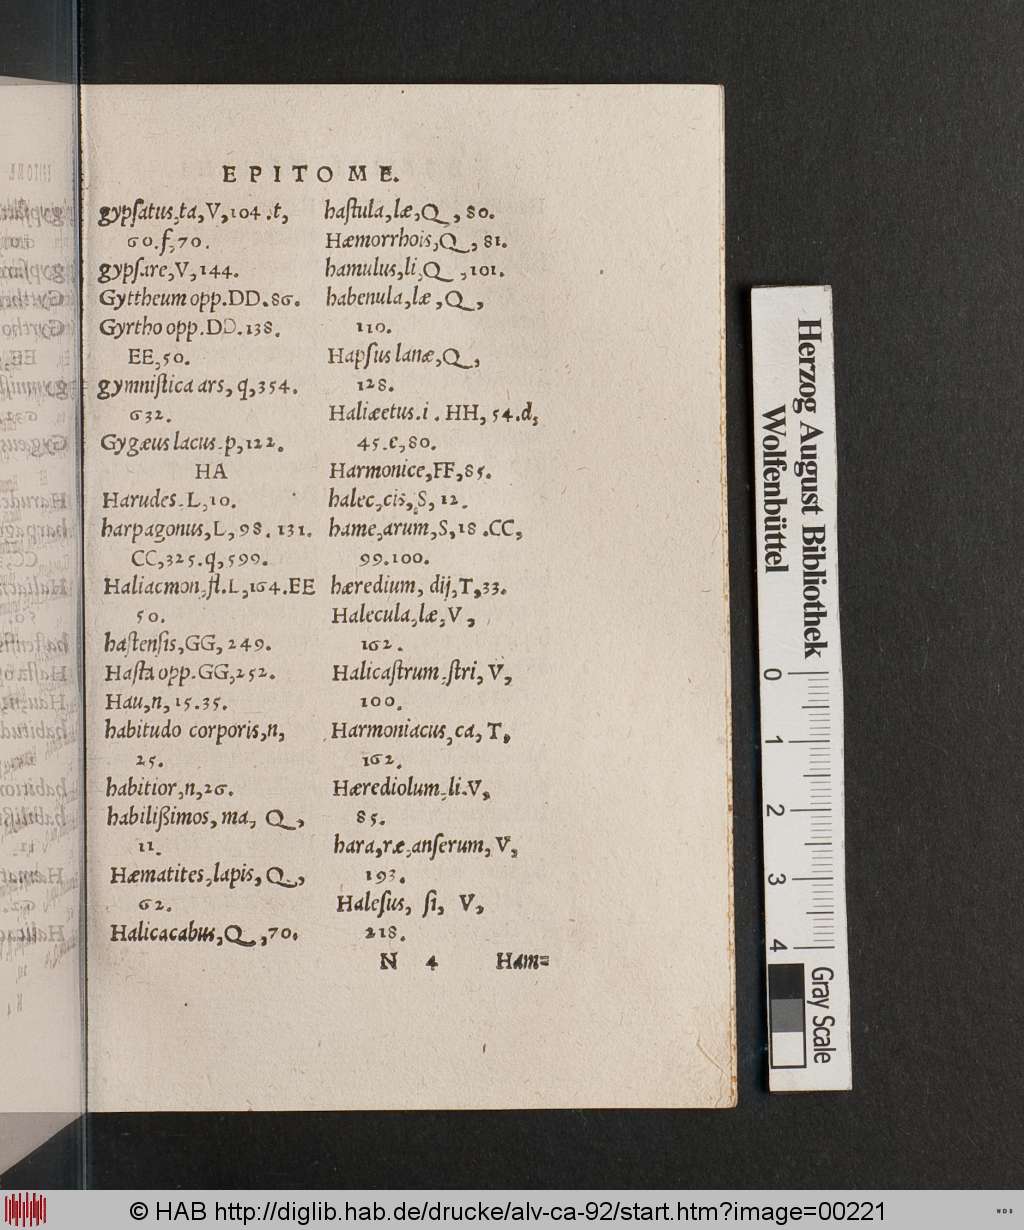 EPITOME.
gypſatus,ta,V,104.t,
60.ſ,70.
gypſare,V,144.
Gyttheum opp.DD.86.
Gyrtho opp.DD.138.
EE,50.
gymniſtica ars, q,354.
632.
Gygæus lacus.p,122.
HA
Harudes.L,10.
harpagonus,L,98.131.
CC,325.q,599.
Haliacmon,fl.L,164.EE
50.
haſtenſis,GG,249.
Haſta opp.GG,252.
Hau,n,15.35.
habitudo corporis,n,
25.
habitior,n,26.
habilißimos, ma, Q,
11.
Hæmatites,lapis,Q,
62.
Halicacabus,Q,70.
haſtula,læ,Q,80.
Hæmorrhois,Q,81.
hamulus,li,Q,101.
habenula,læ,Q,
110.
Hapſus lanæ,Q,
128.
Haliæetus.i.HH,54.d,
45.e,80.
Harmonice,FF,85.
halec,cis,S,12.
hame,arum,S,18.CC,
99.100.
hæredium, dij,T,33.
Halecula,læ,V,
162.
Halicaſtrum.ſtri,V,
100.
Harmoniacus,ca,T,
162.
Hærediolum.li.V,
85.
hara,ræ,anſerum,V,
193.
Haleſus, ſi, V,
218.
N 4 Ham=
Herzog August Bibliothek
Wolfenbüttel
0 1 2 3 4
Gray Scale
© HAB http://diglib.hab.de/drucke/alv-ca-92/start.htm?image=00221
WDB